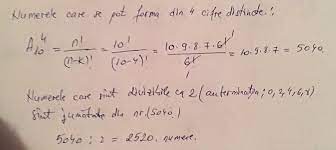 Numerele care se pot forma din 4 cifre distincte:
A₁₀⁴ = n!/(n-k)! = 10!/(10-4)! = 10·9·8·7·6!/6! = 10·9·8·7 = 5040.
Numerele care sunt divizibile cu 2 (au terminația; 0,2,4,6,8)
sunt jumătate din nr. (5040)
5040 : 2 = 2520. numere.